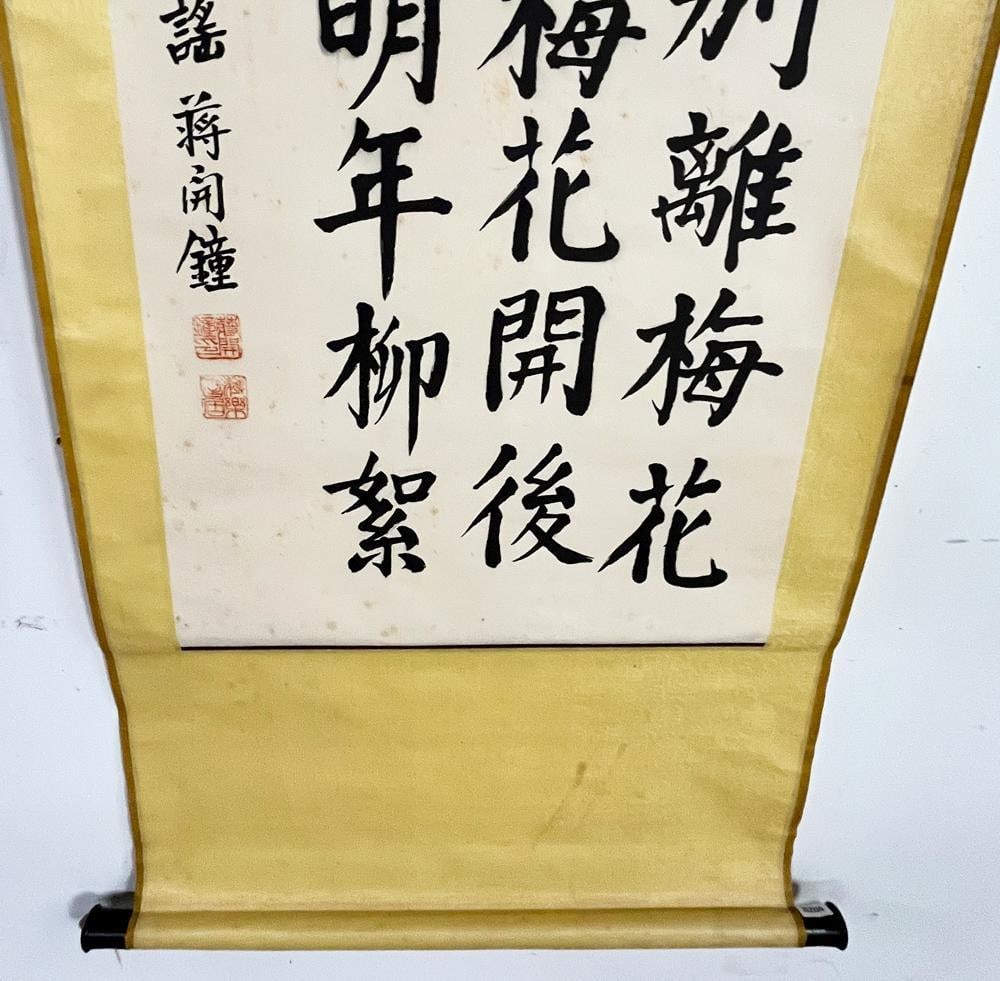 別離梅花
梅花開後
明年柳絮
謠 蔣開鐘